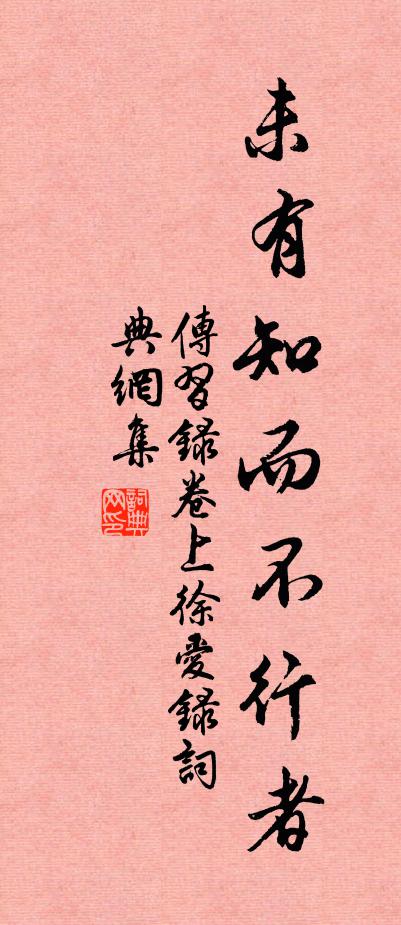 未有知而不行者
傳習録卷上徐愛録詞
典網集
詞典网印